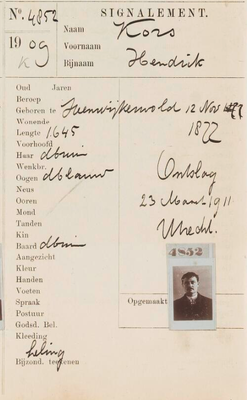 No. 4852 SIGNALEMENT.
1909 Naam Kors
K Voornaam
Bijnaam Hendrik
Oud Jaren
Beroep
Geboren te Steenwijkerwold 12 Nov 1877
Wonende 1877
Lengte 1645
Voorhoofd
Haar dbruin
Wenkbr.
Oogen dblauw Ontslag
Neus
Ooren 23 Maart 1911
Mond
Tanden Utrecht.
Kin
Baard dbruin
Aangezicht 4852
Kleur
Handen
Voeten
Spraak Opgemaakt
Postuur
Godsd. Bel.
Kleeding
heling
Bijzond. teekenen